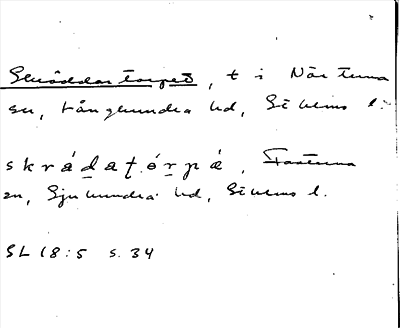 Skräddartorpet, t i Närtuna
sn, Långhundra hd, Sthlms l:
s k r á d a ṭ ó r p á, Fasterna
sn, Sjuhundra hd, Sthlms l.
SL 18:5 s. 34